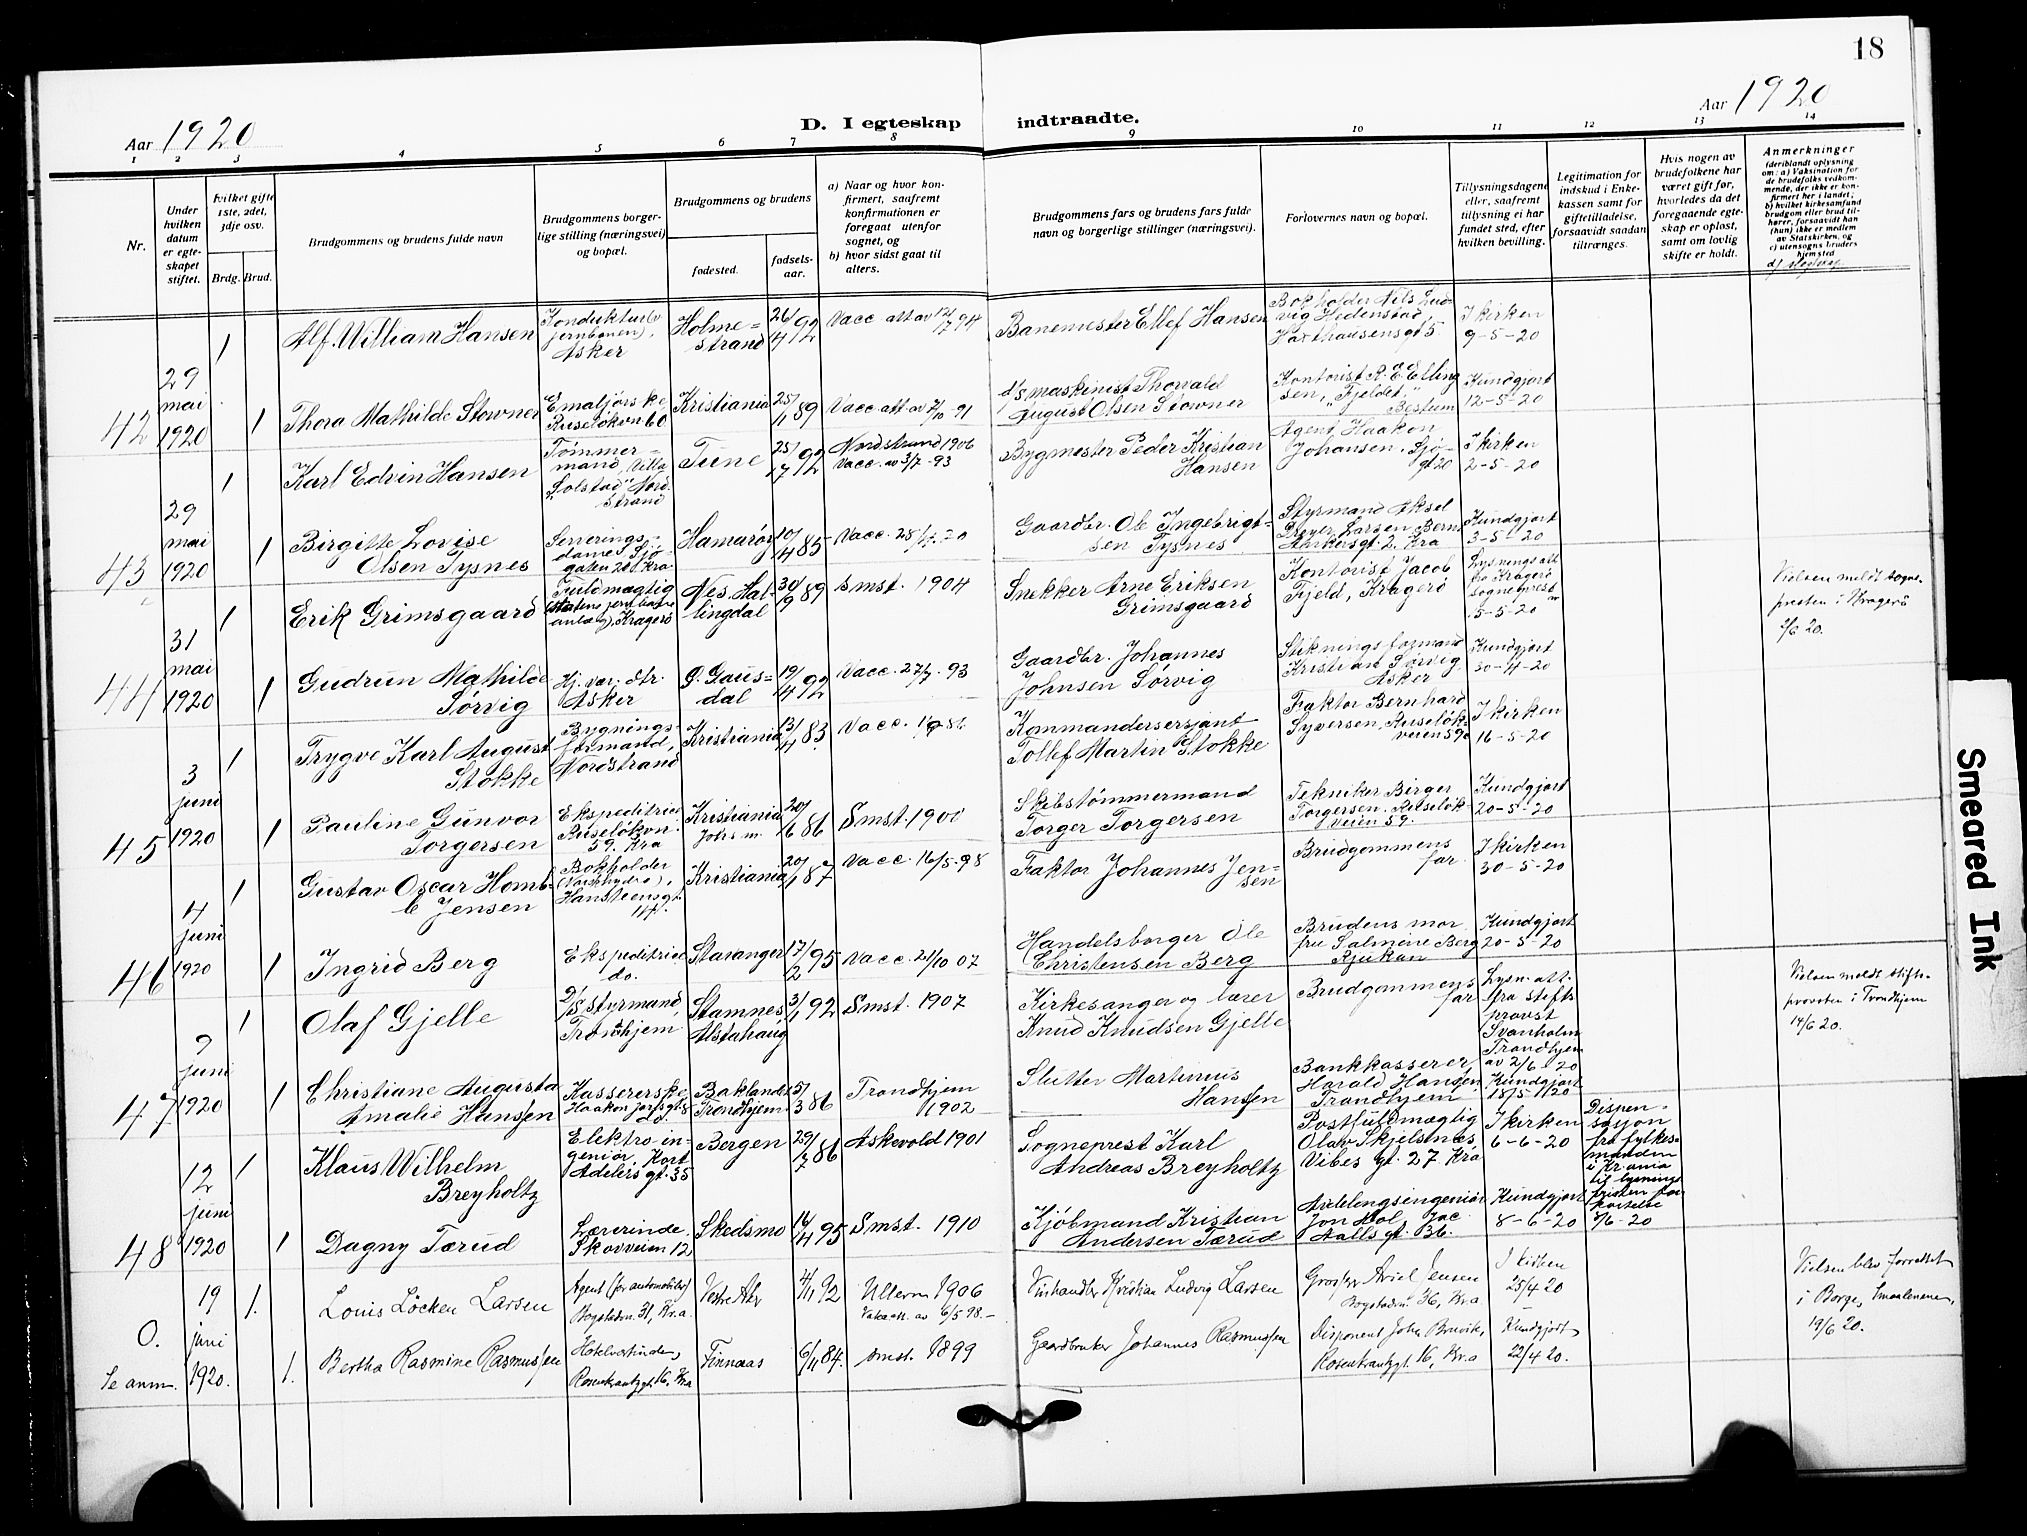 18
Aar 1920
D. I egteskap indtraadte.
Aar 1920
1 2 3 4 5 6 7 8 9 10 11 12 13 14
Nr.
Under hvilken datum er egteskapet stiftet.
Hvilket gifte 1ste, 2det, 3dje osv.
Brdg. Brud.
Brudgommens og brudens fulde navn
Brudgommens borgerlige stilling (næringsvei) og bopæl.
Brudgommens og brudens
fødested.
fødselsaar.
a) Naar og hvor konfirmert, saafremt konfirmationen er foregaat utenfor sognet, og
b) hvor sidst gaat til alters.
Brudgommens fars og brudens fars fulde navn og borgerlige stillinger (næringsvei).
Forlovernes navn og bopæl.
Tillysningsdagene eller, saafremt tillysning ei har fundet sted, efter hvilken bevilling.
Legitimation for indskud i Enkekassen samt for giftetilladelse, forsaavidt saadan tiltrænges.
Hvis nogen av brudefolkene har været gift før, hvorledes da det foregaaende egteskap er opløst, samt om lovlig skifte er holdt.
Anmerkninger
(deriblandt oplysning om: a) Vaksination for de brudefolks vedkommende, der ikke er konfirmert her i landet; b) hvilket kirkesamfund brudgom eller brud tilhører, forsaavidt han (hun) ikke er medlem av Statskirken, og c) utensogns bruders hjemsted
42
29 mai 1920
1 Alf. William Hansen
Konduktør (v jernbanen), Asker
Holmestrand
26/4 92
Vacc. att av 12/7 94
Banemester Ellef Hansen
Bokholder Nils Ludvig Hedenstad, Haxthausensgt 5
I kirken 9-5-20
1 Thora Mathilde Stowner
Emaljørske Ruseløkvn 60
Kristiania
25/1 89
Vacc. att. av 7/10 91
d/s maskinist Thorvald August Olsen Stowner
Kontorist R. E. Ellingsen, "Fjeldet", Bestum
Kundgjort 12-5-20
43
29 mai 1920
1 Karl Edvin Hansen
Tømmermand, Villa "Solstad" Nordstrand
Tune
25/7 92
Nordstrand 1906
Vacc. av 3/7-93
Bygmester Peder Kristian Hansen
Agent Haakon Johansen, Sjøgt 20
I kirken 2-5-20
1 Birgitte Lovise Olsen Tysnes
Serveringsdame, Sjøgaten 20 Kra.
Hamarøy
10/4 85
Gaardbr. Ole Ingebrigtsen Tysnes
Styrmand Aksel Beyer Larsen, Bernt Ankersgt. 2. Kra
Kundgjort 3-5-20
44
31 mai 1920
1 Erik Grimsgaard
Fuldmægtig (Statens jernbaneanlæg), Kragerø
Nes. Hallingdal
30/9 89
Smst. 1904
Snekker Arne Eriksen Grimsgaard
Kontorist Jacob Fjeld, Kragerø
Lysningsatt fra Kragerø sogneprest 5-5-20
Vielsen meldt sognepresten i Kragerø 2/6 20.
1 Gudrun Mathilde Sørvig
Hj. vær. dtr. Asker
Ø. Gausdal
19/4 92
Vacc. 27/7. 93
Gaardbr. Johannes Johnsen Sørvig
Stikningsformand Kristian Sørvig Asker
Kundgjort 30-4-20
45
3 juni 1920
1 Trygve Karl August Stokke
Bygningsformand, Nordstrand
Kristiania
13/4 83
Kommandersersjant Tollef Martin Stokke
Faktor Bernhard Syversen, Ruseløkveien 59e
I kirken 16-5-20
1 Pauline Gunvor Torgersen
Ekspeditrice Ruseløkvn. 59. Kra
Kristiania Johs m.
20/6 86
Smst. 1900
Skibstømmermand Torger Torgersen
Tekniker Birger Torgersen. Ruseløkveien 59.
Kundgjort 20-5-20
46
4 juni 1920
1 Gustav Oscar Homble Jensen
Bokholder (Norsk hydro), Hansteensgt. 14.
Kristiania
20/1 87
Vacc. 16/5-98
Faktor Johannes Jensen
Brudgommens far.
I kirken 30-5-20
1 Ingrid Berg
Ekspeditrice do.
Stavanger
17/2 95
Vacc. 21/10 07
Handelsborger Ole Christensen Berg
Brudens mor fru Salmine Berg Rjukan
Kundgjort 20-5-20
47
9 juni 1920
1 Olaf Gjelle
D/S Styrmand, Trondhjem
Stamnes Alstahaug
3/1 92
Smst. 1907
Kirkesanger og lærer Knud Knudsen Gjelle
Brudgommens far
Lysn. att. fra stiftsprovst Svanholm Trondhjem av 2/6-20
Vielsen meldt stiftsprovsten i Trondhjem 14/6 20.
1 Christiane Augusta Amalie Hanssen
Kassererske Haakon jarlsgt 8 do.
Baklandet Trondhjem
5/3 86
Trondhjem 1902
Slutter Martinius Hanssen
Bankkasserer Harald Hansen Trondhjem
Kundgjort 15/5-1920
48
12 juni 1920
1 Klaus Wilhelm Breyholtz
Elektroingeniør, Kort Adelersgt. 35
Bergen
29/7 86
Askevold 1901
Sogneprest Karl Andreas Breyholtz
Postfuldmægtig Olav Skjelsnes Vibes gt. 27 Kra
I kirken 6-6-20
Dispensasjon fra fylkesmanden i Kr.ania til lysningsfristen forkortelse 9/6-20
1 Dagny Tærud
Lærerinde, Skovveien 12
Skedsmo
14/4 95
Smst. 1910
Kjøbmand Kristian Andersen Tærud
Avdelingsingeniør Jon Hol, Jac. Aallsgt. 36.
Kundgjort 8-6-20
0.
Se anm.
19 juni 1920.
1. Louis Löcken Larsen
Agent (for automobiler) Bogstadvn. 31, Kr.a.
Vestre Aker
4/11 92
Ullern 1906
Vakc.att. av 6/5 98.-
Vinhandler Kristian Ludvig Larsen
Grosserer Axel Jensen Bogstadvn. 36, Kr.a
I kirken 25/4 20
Vielsen blev forrettet i Borge, Smaalenene, 19/6 20.
1. Bertha Rasmine Rasmussen
Hotelvertinde, Rosenkrantzgt. 16, Kr.a
Finnaas
6/11 84.
Smst. 1899
Gaardbruker Johannes Rasmussen
Disponent John Brevik, Rosenkrantzgt. 16, Kr.a
Kundgjort 22/4 20.
Smeared Ink